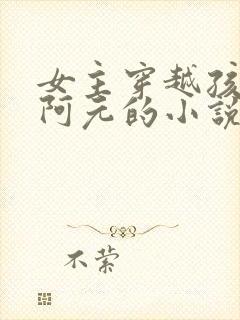 女主穿越孩
阿元的小説
不萦